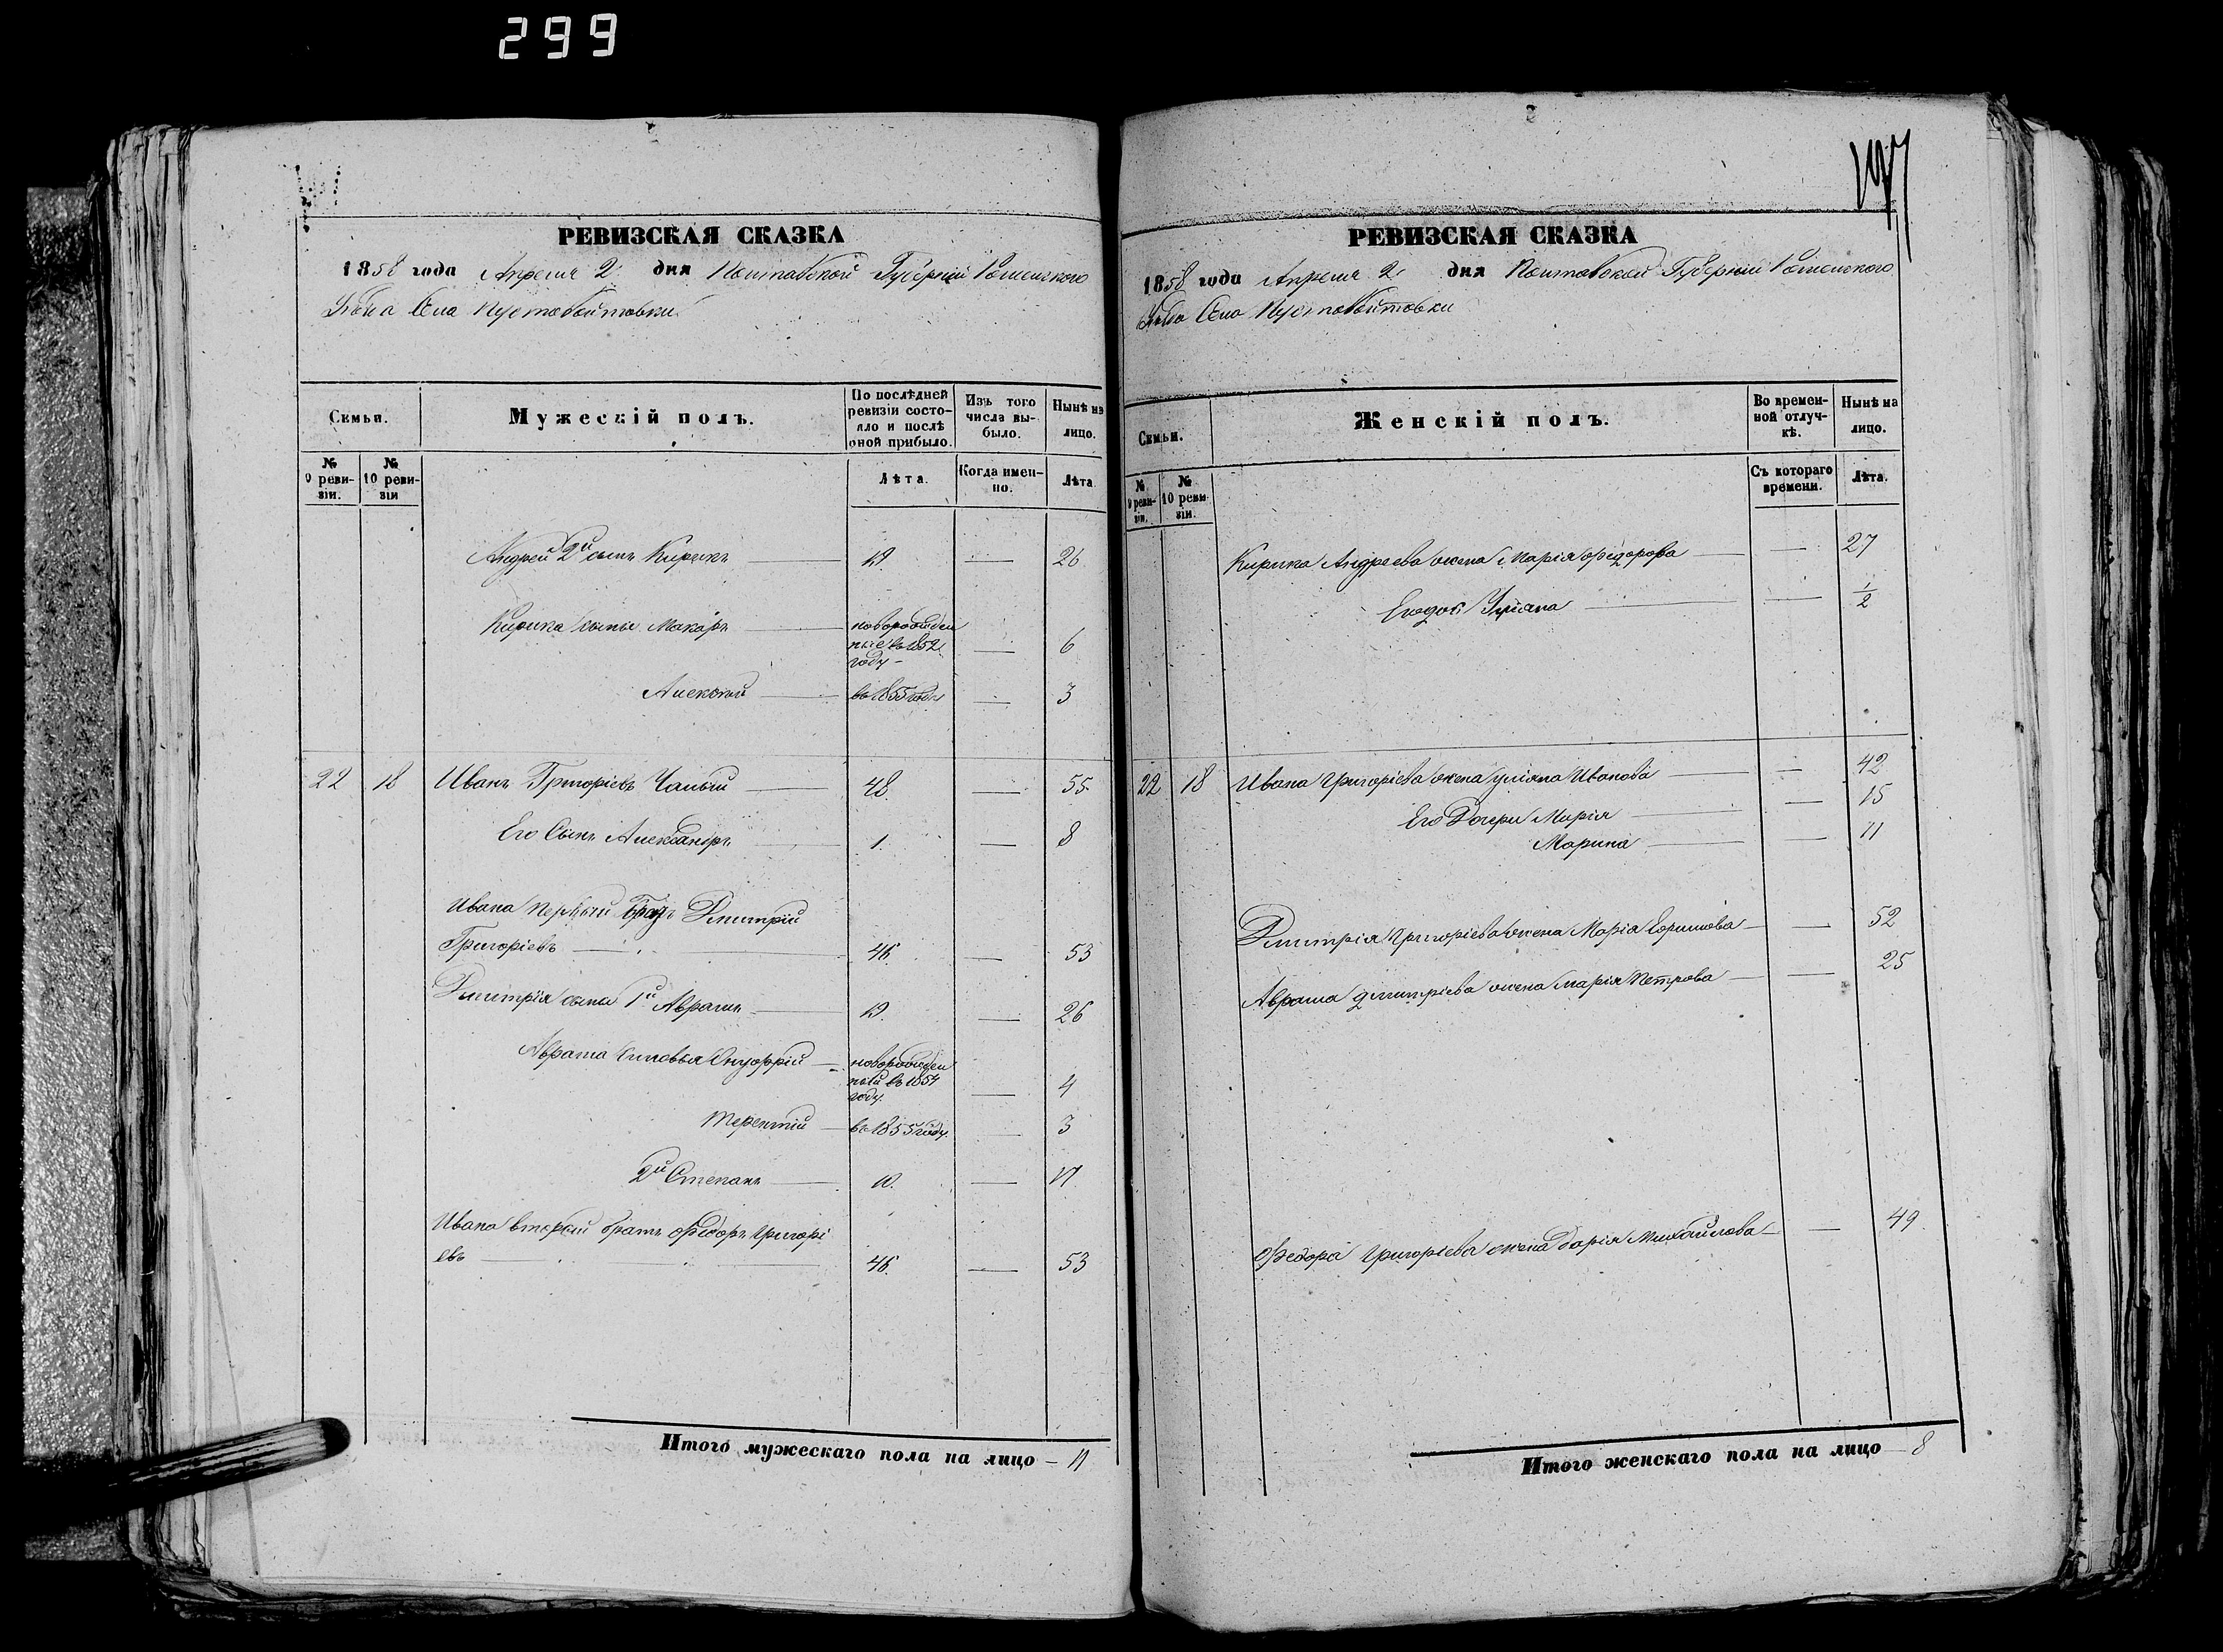 299
РЕВИЗСКАЯ СКАЗКА
1858 года Апреля 2 дня Полтавской Губерніи Роменского
Уезда Села Пустовойтовки
Семьи.
Мужескій полъ.
По послѣдней ревизіи состояло и послѣ оной прибыло.
Изъ того числа выбыло.
Нынѣ на лицо.
№ 9 ревизіи.
№ 10 ревизіи
Лѣта.
Когда именно.
Лѣта
Андрей 2й сынъ Кирикъ — 19. — 26
Кирика сыны Макаръ — новорожденные въ 1852 году — — 6
Алексѣй — въ 1855 году — 3
22 18 Иванъ Григоріевъ Чалый — 48. — 55.
Его Сынъ Александръ — 1. — 8
Ивана первый братъ Дмитрій
Григоріевъ — 46. — 53
Дмитрія сыны 1й Аврамъ — 19. — 26
Аврама сыновья Онуфрій — новорожденный въ 1854 году. — 4
Терентій — въ 1855 году. — 3
2й Степанъ — 10. — 17
Ивана второй братъ Федоръ Григорі
евъ — 46. — 53
Итого мужескаго пола на лицо — 11
107
РЕВИЗСКАЯ СКАЗКА
1858 года Апреля 2 дня Полтавской Губерніи Роменского
Уезда Села Пустовойтовки
Семьи.
Женскій полъ.
Во временной отлучкѣ.
Нынѣ на лицо.
№ 9 ревизіи.
№ 10 ревизіи.
Съ котораго времени.
Лѣта.
Кирика Андреева жена Марія Федорова — — 27
Его дочь Уліяна — — 1/2
22 18 Ивана Григоріева жена Уліяна Иванова — — 42
Его Дочери Марія — — 15
Марина — — 11
Дмитрія Григоріева жена Марія — — 52
Аврама Дмитріева жена Марія Петрова — — 25
Федора Григоріева жена Дарія Михайлова — — 49.
Итого женскаго пола на лицо — 8